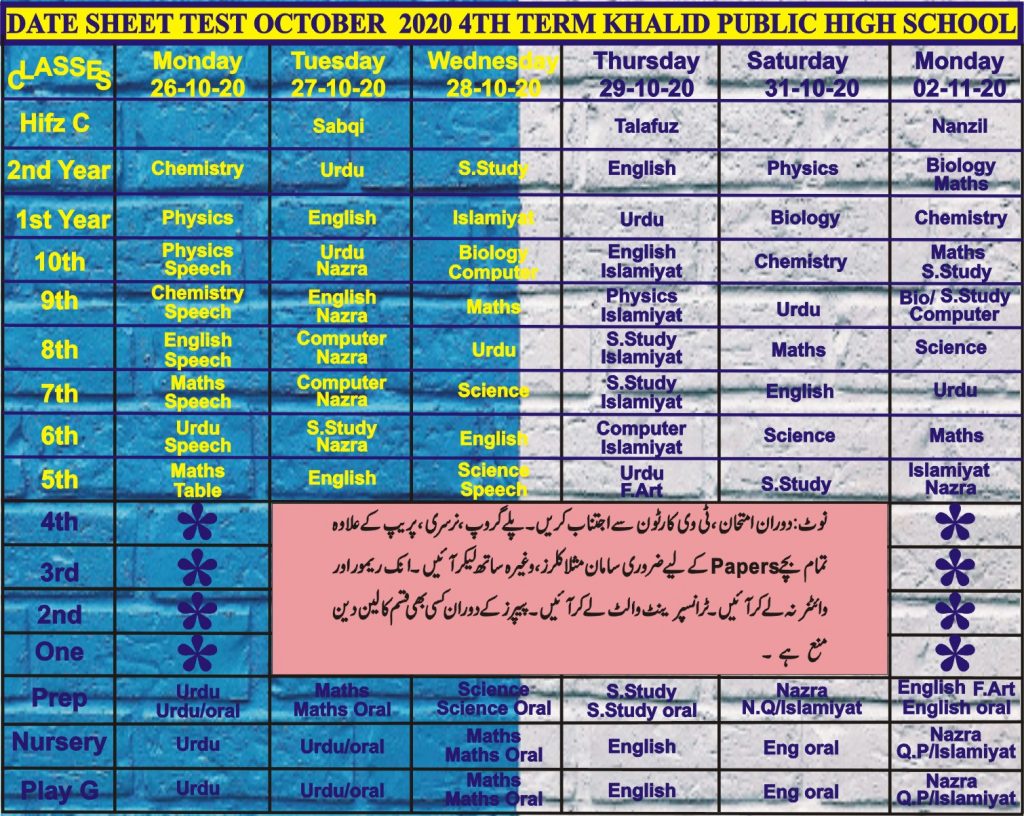 DATE SHEET TEST OCTOBER 2020 4TH TERM KHALID PUBLIC HIGH SCHOOL
CLASSES Monday Tuesday Wednesday Thursday Saturday Monday
26-10-20 27-10-20 28-10-20 29-10-20 31-10-20 02-11-20
Hifz C Sabqi Talafuz Nanzil
2nd Year Chemistry Urdu S.Study English Physics Biology
Maths
1st Year Physics English Islamiyat Urdu Biology Chemistry
10th Physics Urdu Biology English Chemistry Maths
Speech Nazra Computer Islamiyat S.Study
9th Chemistry English Maths Physics Urdu Bio/ S.Study
Speech Nazra Islamiyat Computer
8th English Computer Urdu S.Study Maths Science
Speech Nazra Islamiyat
7th Maths Computer Science S.Study English Urdu
Speech Nazra Islamiyat
6th Urdu S.Study English Computer Science Maths
Speech Nazra Islamiyat
5th Maths English Science Urdu S.Study Islamiyat
Table Speech F.Art Nazra
4th * *
3rd * *
2nd * *
One * *
نوٹ: دوران امتحان، ٹی وی کارٹون سے اجتناب کریں۔ پلے گروپ، نرسری، پریپ کے علاوہ
تمام بچے Papers کے لیے ضروری سامان مثلا کلرز، وغیرہ ساتھ لیکر آئیں۔ انک ریمور اور
وائٹر نہ لے کر آئیں۔ ٹرانسپرینٹ والٹ لے کر آئیں۔ پیپرز کے دوران کسی بھی قسم کا لین دین
منع ہے ۔
Prep Urdu Maths Science S.Study Nazra English F.Art
Urdu/oral Maths Oral Science Oral S.Study oral N.Q/Islamiyat English oral
Nursery Urdu Urdu/oral Maths English Eng oral Nazra
Maths Oral Q.P/Islamiyat
Play G Urdu Urdu/oral Maths English Eng oral Nazra
Maths Oral Q.P/Islamiyat